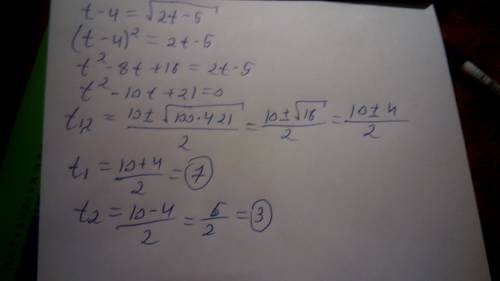 t-4=√2t-5
(t-4)²=2t-5
t²-8t+16=2t-5
t²-10t+21=0
t12=10±√100-421/2=10±√16/2=10±4/2
t1=10+4/2=7
t2=10-4/2=6/2=3